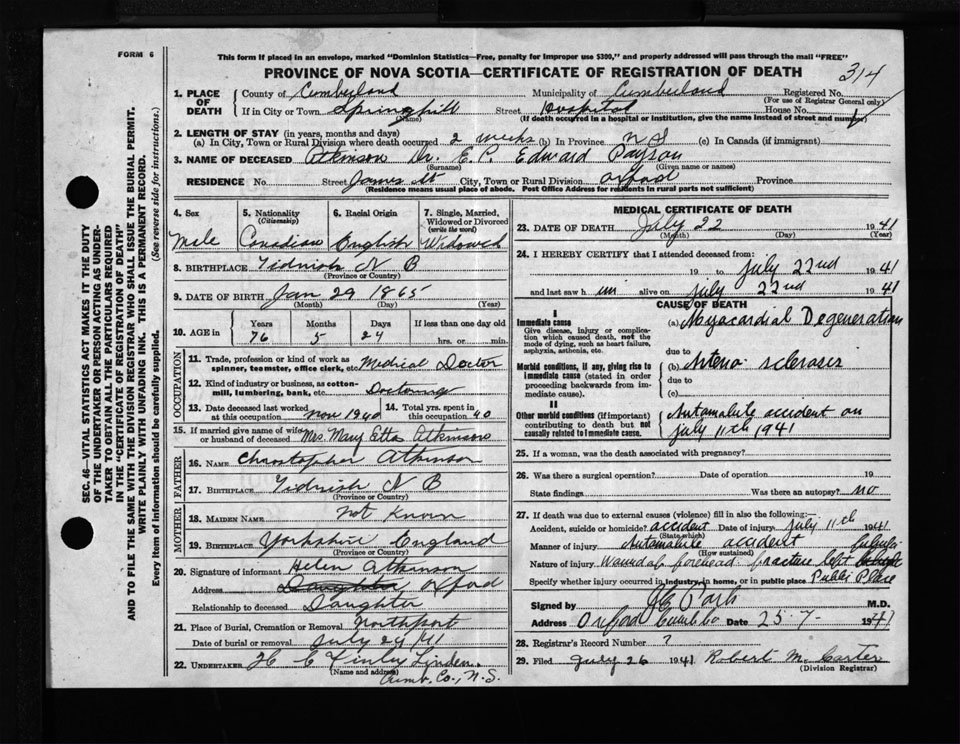 FORM 6
This form if placed in an envelope, marked "Dominion Statistics—Free, penalty for improper use $300," and properly addressed will pass through the mail "FREE"
PROVINCE OF NOVA SCOTIA—CERTIFICATE OF REGISTRATION OF DEATH
314
1. PLACE OF DEATH
County of Cumberland Municipality of Cumberland Registered No.
(For use of Registrar General only)
If in City or Town Springhill Street Hospital House No.
(Name) (If death occurred in a hospital or institution, give the name instead of street and number)
2. LENGTH OF STAY (in years, months and days)
(a) In City, Town or Rural Division where death occurred 2 weeks (b) In Province N S (c) In Canada (if immigrant)
3. NAME OF DECEASED Atkinson Dr. E. P. Edward Payson
(Surname) (Given name or names)
RESIDENCE No. Street James St City, Town or Rural Division Oxford Province
(Residence means usual place of abode. Post Office Address for residents in rural parts not sufficient)
4. Sex Male
5. Nationality (Citizenship) Canadian
6. Racial Origin English
7. Single, Married, Widowed or Divorced (write the word) Widowed
8. BIRTHPLACE Tidnish N B
(Province or Country)
9. DATE OF BIRTH Jan 29 1865
(Month) (Day) (Year)
10. AGE in Years Months Days If less than one day old
76 5 24 hrs. or min.
OCCUPATION
11. Trade, profession or kind of work as spinner, teamster, office clerk, etc. Medical Doctor
12. Kind of industry or business, as cotton-mill, lumbering, bank, etc. Doctoring
13. Date deceased last worked at this occupation Nov 1940 14. Total yrs. spent in this occupation 40
15. If married give name of wife or husband of deceased Mrs. Mary Etta Atkinson
FATHER
16. Name Christopher Atkinson
17. Birthplace Tidnish N B
(Province or Country)
MOTHER
18. Maiden Name Not Known
19. Birthplace Yorkshire England
(Province or Country)
20. Signature of informant Helen Atkinson
Address Daughter Oxford
Relationship to deceased Daughter
21. Place of Burial, Cremation or Removal Northport
Date of burial or removal July 24/41
22. UNDERTAKER H C Kinley Linden,
(Name and address) Cumb. Co., N.S.
MEDICAL CERTIFICATE OF DEATH
23. DATE OF DEATH July 22 1941
(Month) (Day) (Year)
24. I HEREBY CERTIFY that I attended deceased from:
19 to July 22nd 1941
and last saw h im alive on July 22nd 1941
CAUSE OF DEATH
I
Immediate cause
Give disease, injury or complication which caused death, not the mode of dying, such as heart failure, asphyxia, asthenia, etc.
(a) Myocardial Degeneration
due to
Morbid conditions, if any, giving rise to immediate cause (stated in order proceeding backwards from immediate).
(b) Arterio sclerosis
due to
(c)
II
Other morbid conditions (if important) contributing to death but not causally related to immediate cause.
Automabile accident on
July 11th 1941
25. If a woman, was the death associated with pregnancy?
26. Was there a surgical operation? Date of operation 19
State findings Was there an autopsy? no
27. If death was due to external causes (violence) fill in also the following:—
Accident, suicide or homicide? accident Date of injury July 11th 1941
(State which)
Manner of injury Automabile accident
(How sustained)
Nature of injury Wound of forehead fracture left
Specify whether injury occurred in industry, in home, or in public place Public Place
Signed by M.D.
Address Oxford Date 25-7- 1941
28. Registrar's Record Number ?
29. Filed July 26 1941 Robert M. Carter
(Division Registrar)
SEC. 46—VITAL STATISTICS ACT MAKES IT THE DUTY
OF THE UNDERTAKER OR PERSON ACTING AS UNDER-
TAKER TO OBTAIN ALL THE PARTICULARS REQUIRED
IN THE "CERTIFICATE OF REGISTRATION OF DEATH"
AND TO FILE THE SAME WITH THE DIVISION REGISTRAR WHO SHALL ISSUE THE BURIAL PERMIT.
WRITE PLAINLY WITH UNFADING INK. THIS IS A PERMANENT RECORD.
Every item of information should be carefully supplied. (See reverse side for instructions.)